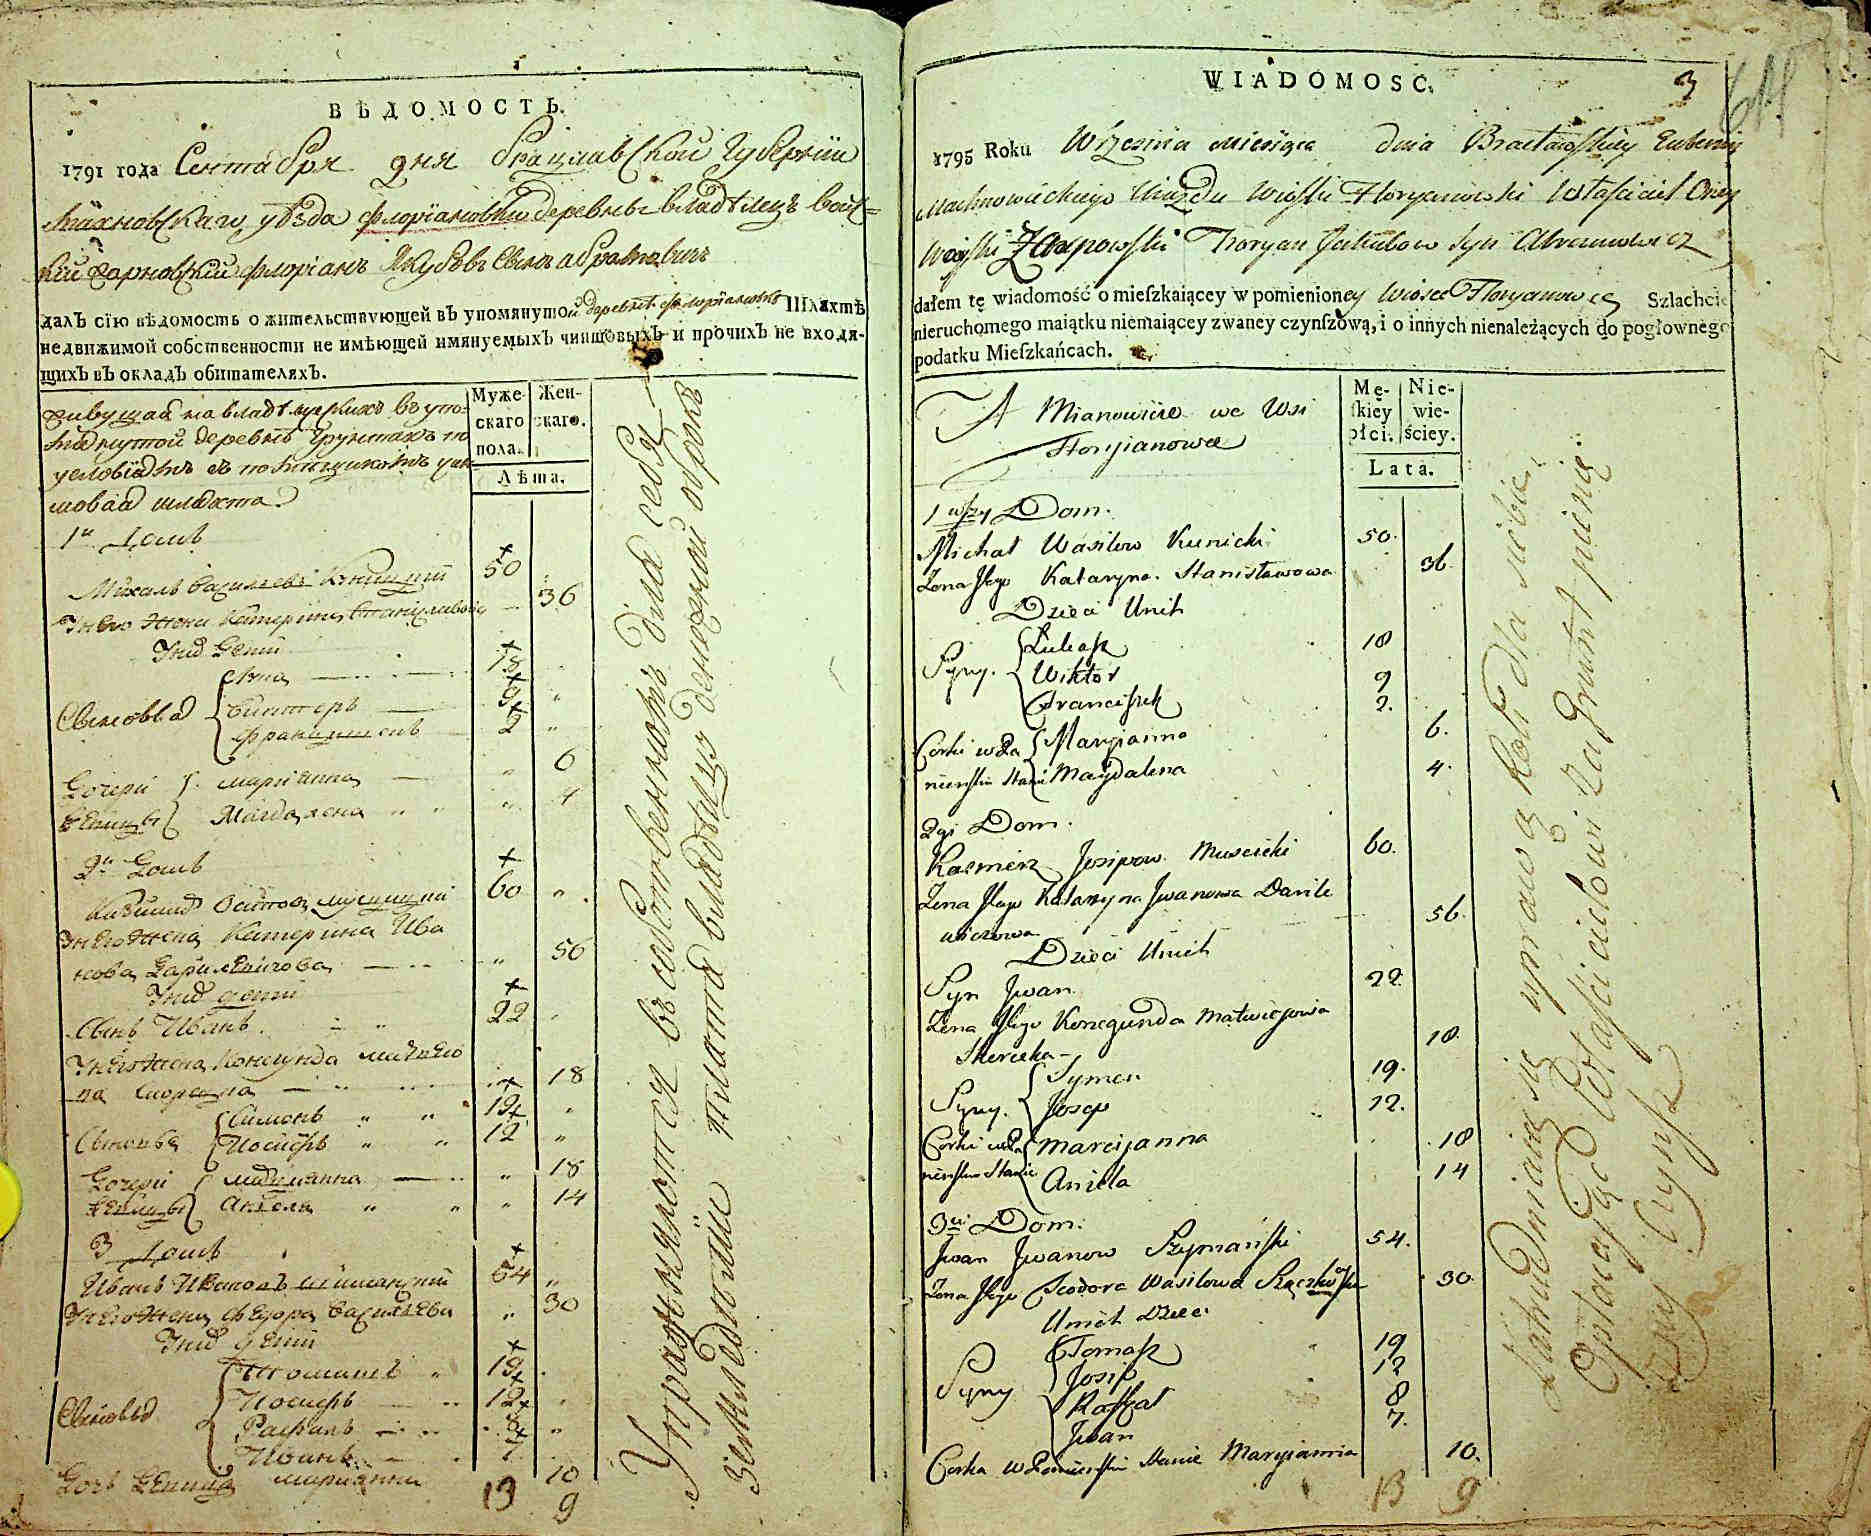 ВѢДОМОСТЬ.
1791 года Сентября дня Брацлавской Губернїи
Махновскаго уѣзда Флорїановки деревнѣ владѣлецъ вой=
скїй Флорїанъ Якубовъ Сынъ Абрамовичъ
далъ сїю вѣдомость о жительствующей въ упомянутой деревнѣ Флорїановкѣ Шляхтѣ
недвижимой собственности не имѣющей имянуемыхъ чиншовыхъ и прочихъ не входя-
щихъ въ окладъ обитателяхъ.
живущая на владѣлческихъ въ упо-
мянутой деревнѣ грунтахъ по
условїямъ съ помѣщикомъ чин
шовая шляхта
Муже-
скаго
пола.
Жен-
скаго.
Лѣта.
1й Домъ
Михалъ Васильевъ Куницкий 50
У него жена Катерина Станиславова 36
У них Дети
Сыновья
Лука 18
Виктеръ 9
Францишекъ 2
Дочери девицы
Марїанна 6
Магдалена 4
2й Домъ
Казимиръ Осипов Мусицкий 60
У него жена Катерина Ива
нова Данилевичова 56
У них дети
Сынъ Иванъ 22
У него жена Конегунда Матвѣе
ва 18
Сыновья
Симонъ 19
Иосифъ 12
Дочери девицы
Марианна 18
Анеля 14
3 Домъ
Иванъ Ивановъ Шиманский 54
У него жена Федора Васильева 30
У них дети
Сыновья
Томашъ 19
Иосифъ 12
Рафалъ 8
Иванъ 7
Дочь девица Марианна 10
13 9
Упражняются въ собственномъ для себя
земледелїи платя владѣлцу денежный оброкъ
WIADOMOSC.
3
1795 Roku Wrzesnia miesiąca dnia Bracławskiey Gubernij
Machnowieckiego Uiazdu Wioski Floryanowki Własciciel Oney
Woyski Floryan Jakubow syn Abramowicz
dałem tę wiadomość o mieſzkaiącey w pomienioney Wiosce Floryanowce Szlachcie
nieruchomego maiątku niemaiącey zwaney czynſzową, i o innych nienależących do pogłownego
podatku Mieſzkańcach.
A Mianowicie we Wsi
Floryianowce
Mę-
ſkiey
płci.
Nie-
wie-
ściey.
Lata.
1wszy Dom.
Michał Wasilow Kunicki 50.
Zona Jego Kataryna Stanisławowa 36.
Dzieci Unich
Syny.
Łukasz 18
Wiktor 9
Franciszek 2.
Corki w Panienskim Stanie
Maryianna 6.
Magdalena 4.
2gi Dom.
Kazmierz Josipow Musicki 60.
Zona Jego Katarzyna Jwanowa Danile
wiczowa 56.
Dzieci Unich
Syn Jwan 22.
Zona Jego Konegunda Matwiejowa
18.
Syny.
Symon 19.
Josep 12.
Corki w Panienskim Stanie
Marcijanna 18
Aniela 14
3ci Dom.
Jwan Jwanow Szymański 54.
Zona Jego Teodora Wasilowa 30.
Unich Dzieci
Syny
Tomasz 19
Josip 12
Rafał 8
Jwan 7.
Corka w Panienskim Stanie Maryianna 10.
13 9
Zatrudniaią się uprawą roli dla siebie,
Opłacaiąc Włascicielowi za grunt pieniężny Czynsz